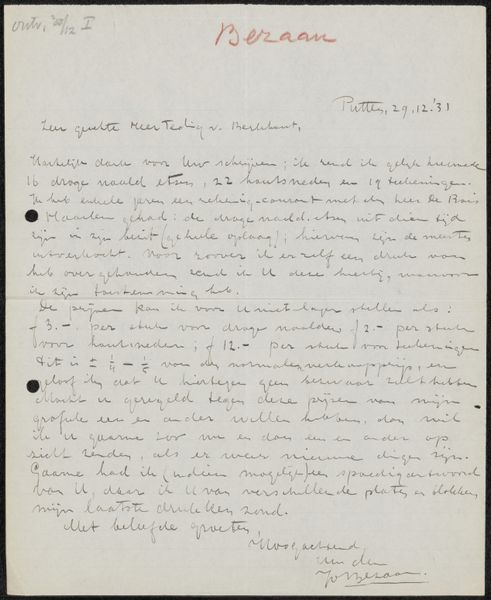 ontv. 30/12 I
Bezaan
Putten, 29.12.'31
Zeer geachte Heer Teding v. Berkhout,
Hartelijk dank voor Uw schrijven; ik zend U gelijk hiermede
16 droge naald etsen, 22 houtsneden en 19 teekeningen.
Ik heb enkele jaren een rekening-courant met den heer De Bois
Haarlem gehad: de droge naald-etsen uit dien tijd
zijn in zijn bezit (geheele oplaag); hiervan zijn de meeste
uitverkocht. Voor zoover ik er zelf een druk van
heb overgehouden zend ik U deze hierbij, waarvoor
ik zijn toestemming heb.
De prijzen kan ik voor U niet lager stellen als:
f 3.- per stuk voor droge naalden f 2.- per stuk
voor houtsneden; f 12.- per stuk voor teekeningen
Dit is ± 1/4 - 1/5 van den normalen verkoopprijs, en
geloof ik dat U hiertegen geen bezwaar zult hebben
Mocht U geregeld tegen deze prijzen van mijn
grafiek een en ander willen hebben, dan wil
ik U gaarne zoo nu en dan een en ander op
zicht zenden, als er weer nieuwe dingen zijn.
Gaarne had ik (indien mogelijk) een spoedig antwoord
van U, daar ik U van verschillende platen en blokken
mijn laatste drukken zond.
Met beleefde groeten,
Hoogachtend,
Uw dw
Jo Bezaan.